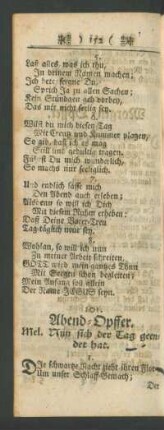 ( 152 )
5.
Laß alles, was ich thu,
In deinem Namen machen;
Sprich Ja zu allen Sachen;
Kein Stündgen geh vorbey,
Das mir nicht seelig sey.
6.
Wilst du mich diesen Tag
Mit Creutz und Kummer plagen,
So gib, daß ich es mag
Still und gedultig tragen.
Führst Du mich wunderlich,
So machs nur seeliglich.
7.
Und endlich lasse mich
Den Abend auch erleben;
Alsdenn so will ich Dich
Mit diesem Ruhm erheben:
Daß Deine Vater-Treu
Tag-täglich neue sey.
8.
Wohlan, so will ich nun
Zu meiner Arbeit schreiten,
GOTT wird mein gantzes Thun
Mit Seegen selbst begleiten;
Mein Anfang soll allein
Der Name JESUS seyn.
101.
Abend-Opffer.
Mel. Nun sich der Tag geen-
det hat.
1.
Die schwartze Nacht zieht ihren Flor
Um unser Schlaff-Gemach;
Der